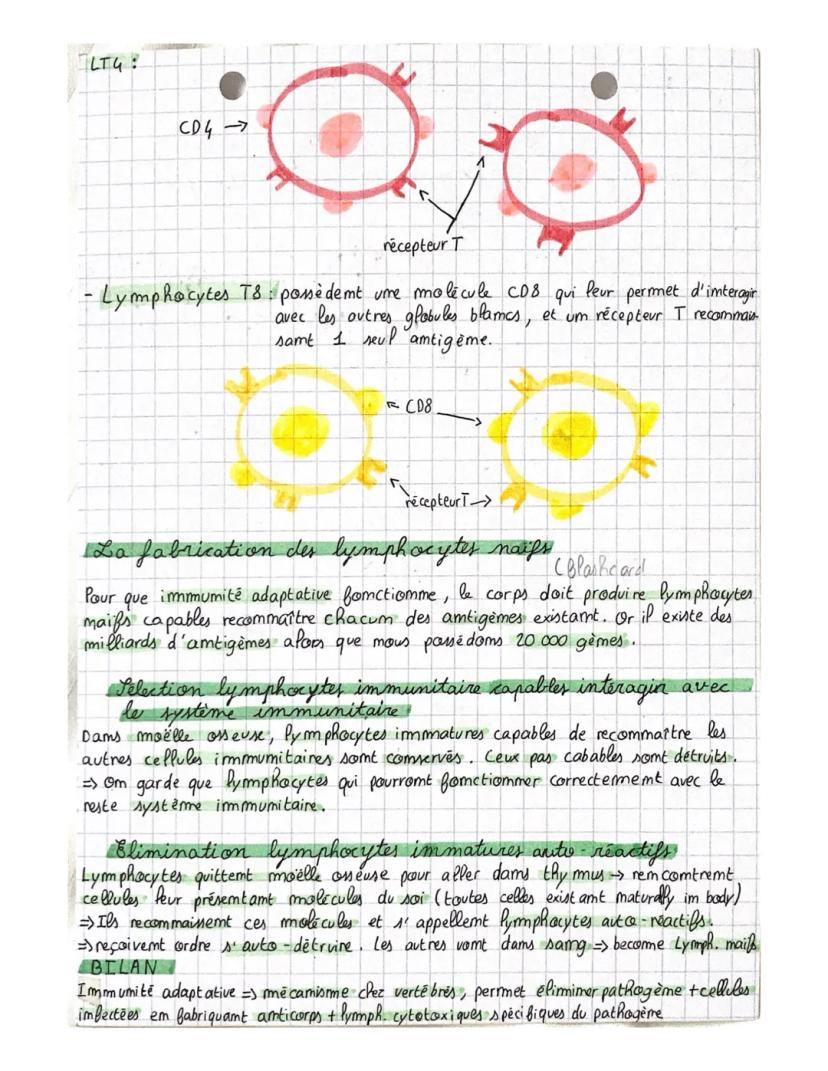 LT4 :
CD4 →
récepteur T
- Lymphocytes T8 : possèdent une molécule CD8 qui leur permet d'interagir
avec les autres globules blancs, et un récepteur T reconnais-
sant 1 seul antigème.
CD8
récepteur T →
La fabrication des lymphocytes naïfs
(flashcard
Pour que immunité adaptative fonctionne, le corps doit produire lymphocytes
naïfs capables recommaître chacun des antigèmes existant. Or il existe des
milliards d'antigèmes alors que nous possédons 20 000 gèmes.
Sélection lymphocytes immunitaire capables intéragir avec
le système immunitaire
Dans moëlle osseuse, lymphocytes immatures capables de reconnaître les
autres cellules immunitaires sont conservés. Ceux pas cabables sont détruits.
=> On garde que lymphocytes qui pourront fonctionner correctement avec le
reste système immunitaire.
Elimination lymphocytes immatures auto-réactifs
Lymphocytes quittent moëlle osseuse pour aller dans thymus → rencontrent
cellules leur présentant molécules du soi (toutes celles existant naturally in body)
=> Ils reconnaissent ces molécules et s'appellent lymphocytes auto-réactifs.
=> reçoivent ordre s'auto-détruire. Les autres vont dans sang => become Lymph. naïfs
BILAN
Immunité adaptative => mécanisme chez vertébrés, permet éliminer pathogène + cellules
infectées en fabriquant anticorps + lymph. cytotoxiques spécifiques du pathogène